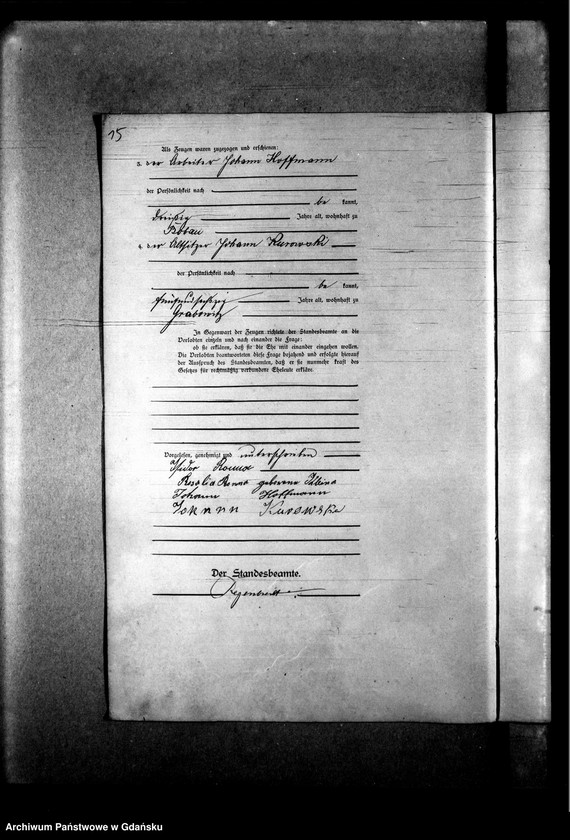 15
Als Zeugen waren zugezogen und erschienen:
3. der Arbeiter Johann Hoffmann
der Persönlichkeit nach
be kannt,
dreißig Jahre alt, wohnhaft zu
Bobau
4. der Altsitzer Johann Kurowski
der Persönlichkeit nach
be kannt,
fünfundsechzig Jahre alt, wohnhaft zu
Grabowitz
In Gegenwart der Zeugen richtete der Standesbeamte an die
Verlobten einzeln und nach einander die Frage:
ob sie erklären, daß sie die Ehe mit einander eingehen wollen.
Die Verlobten beantworteten diese Frage bejahend und erfolgte hierauf
der Ausspruch des Standesbeamten, daß er sie nunmehr kraft des
Gesetzes für rechtmäßig verbundene Eheleute erkläre.
Vorgelesen, genehmigt und unterschrieben
Isidor
Rosalia geborene
Johann Hoffmann
Johann Kurowski
Der Standesbeamte.
Archiwum Państwowe w Gdańsku